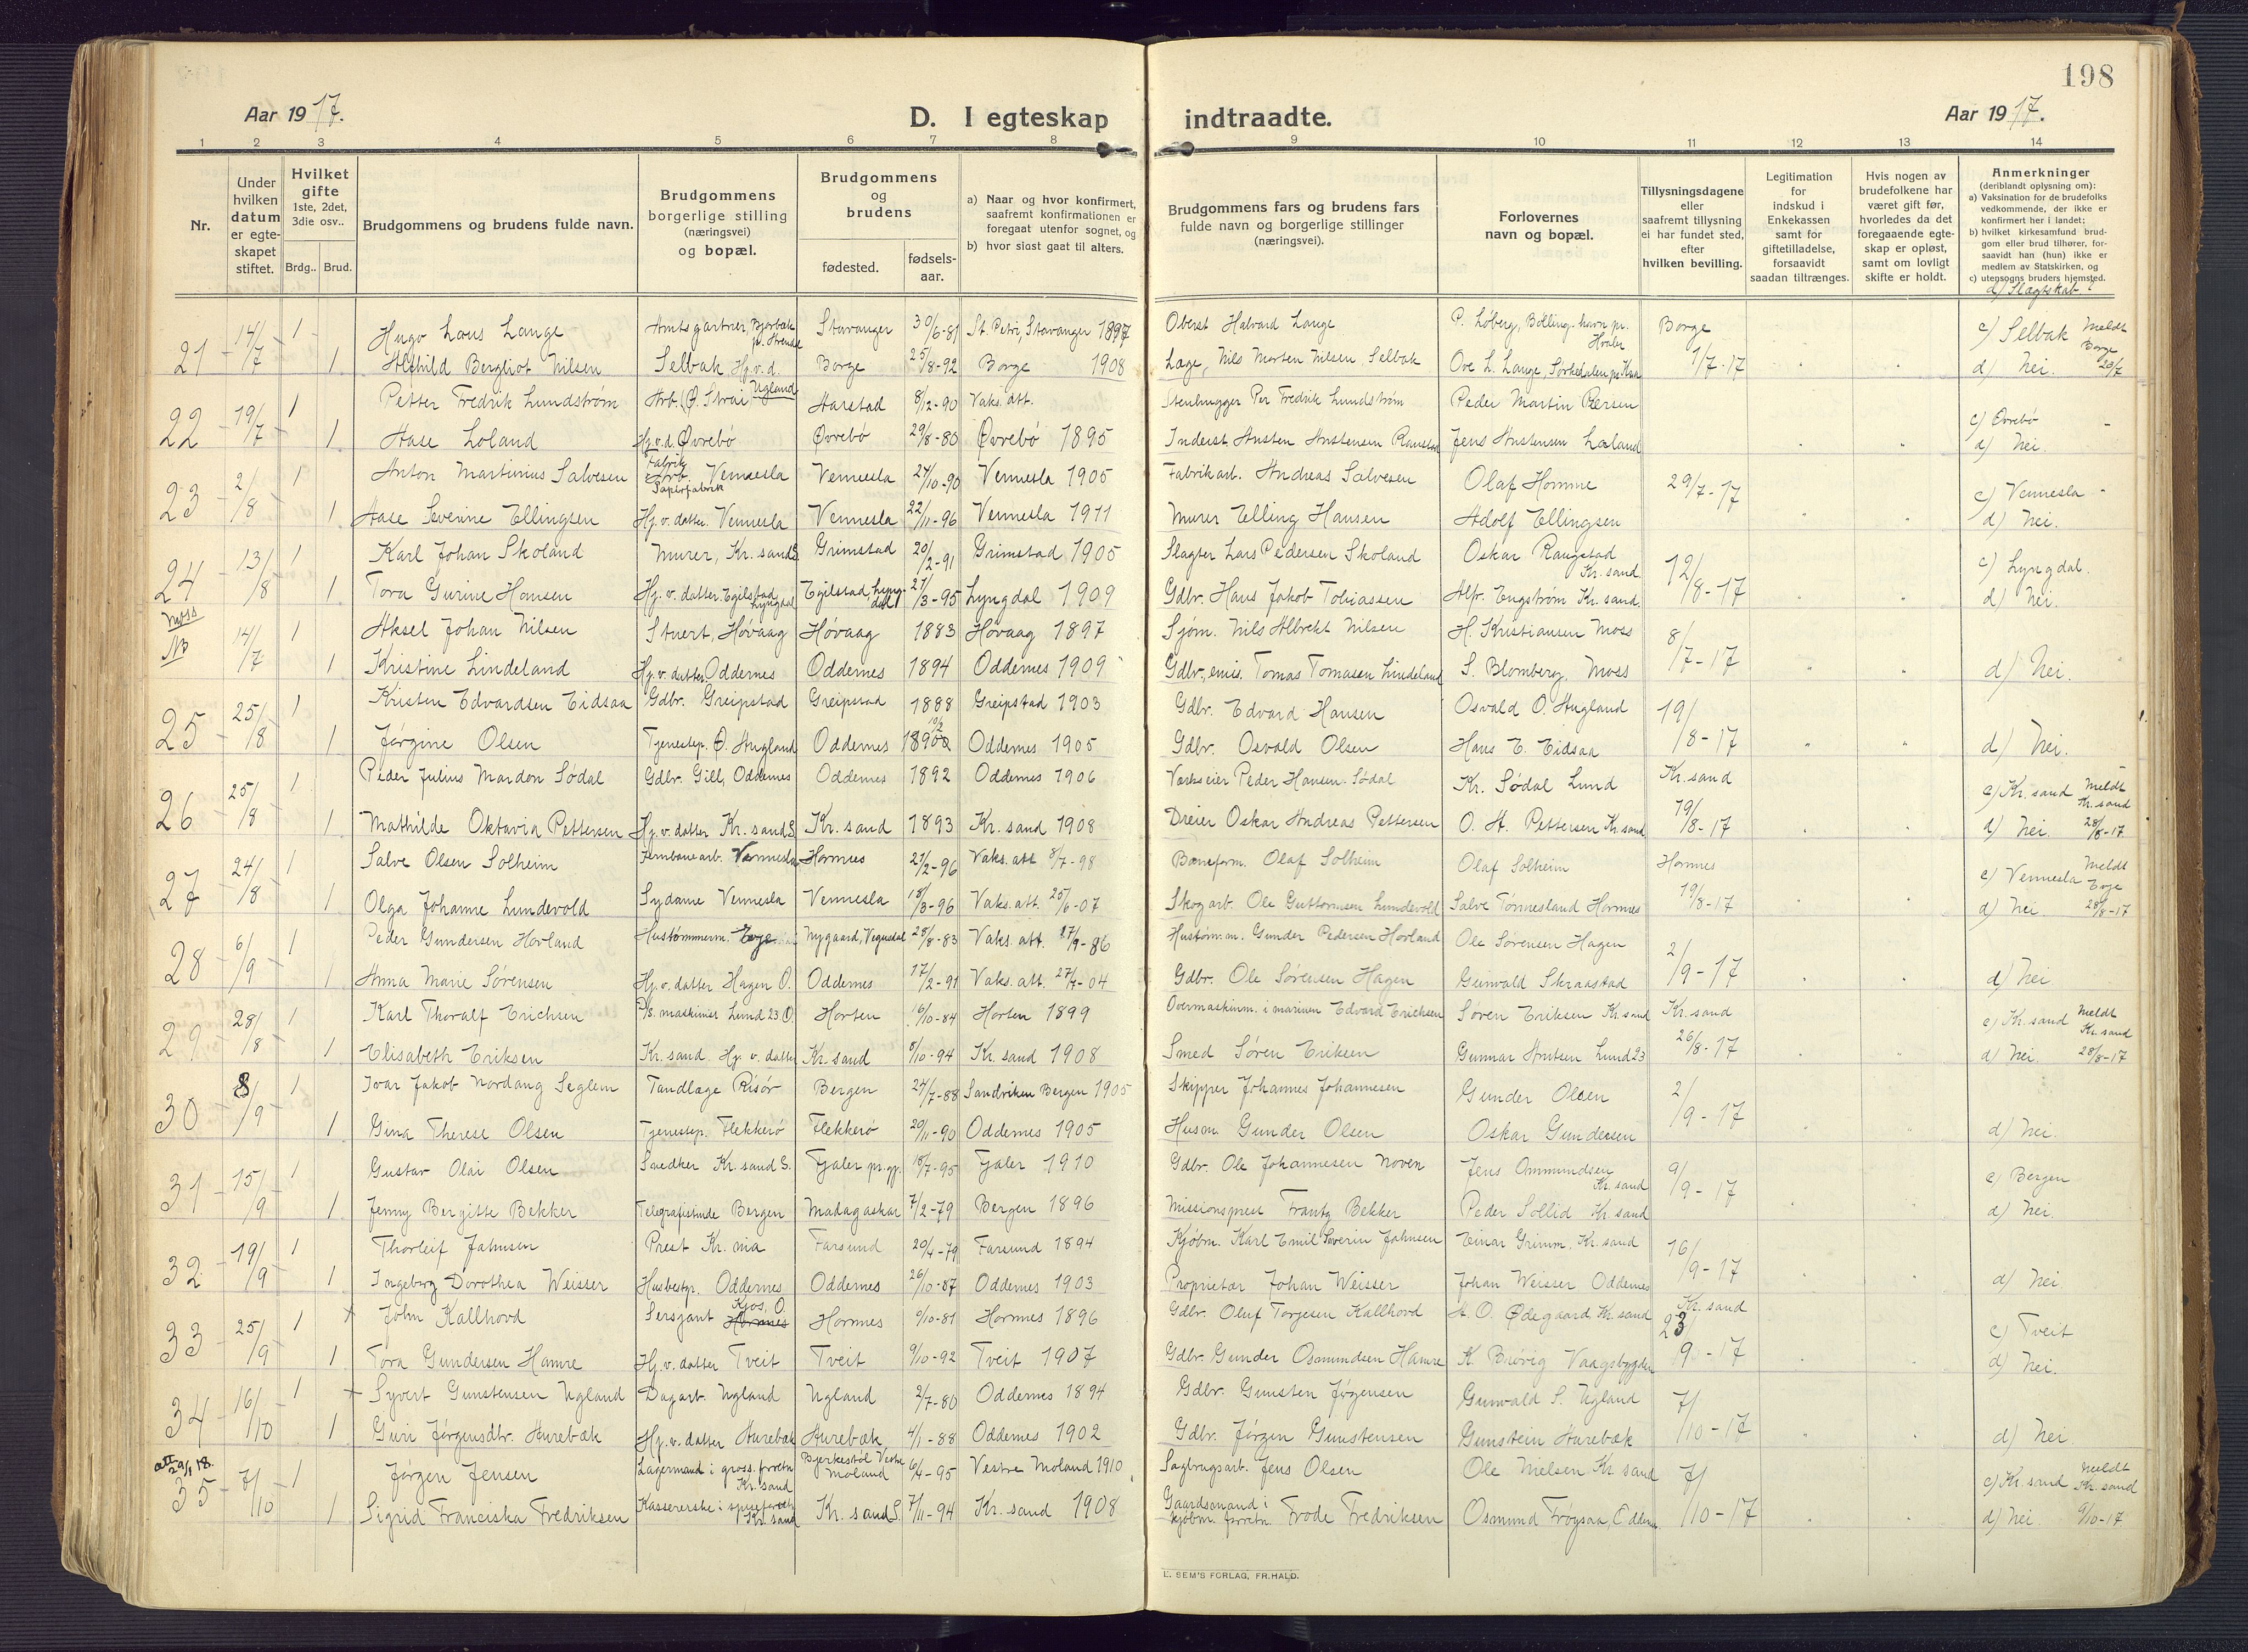 198
Aar 1917.
D. I egteskap indtraadte.
Aar 1917.
1 2 3 4 5 6 7 8 9 10 11 12 13 14
Nr.
Under hvilken datum er egteskapet stiftet.
Hvilket gifte 1ste, 2det, 3die osv..
Brdg.. Brud.
Brudgommens og brudens fulde navn.
Brudgommens borgerlige stilling (næringsvei) og bopæl.
Brudgommens og brudens
fødested. fødsels-aar.
a) Naar og hvor konfirmert, saafremt konfirmationen er foregaat utenfor sognet, og
b) hvor sidst gaat til alters.
Brudgommens fars og brudens fars fulde navn og borgerlige stillinger (næringsvei).
Forlovernes navn og bopæl.
Tillysningsdagene eller saafremt tillysning ei har fundet sted, efter hvilken bevilling.
Legitimation for indskud i Enkekassen samt for giftetilladelse, forsaavidt saadan tiltrænges.
Hvis nogen av brudefolkene har været gift før, hvorledes da det foregaaende egteskap er opløst, samt om lovligt skifte er holdt.
Anmerkninger (deriblandt oplysning om):
a) Vaksination for de brudefolks vedkommende, der ikke er konfirmert her i landet;
b) hvilket kirkesamfund brudgom eller brud tilhører, forsaavidt han (hun) ikke er medlem av Statskirken, og
c) utensogns bruders hjemsted.
d) Slægtskab?
21 14/7 1 Hugo Laus Lange Amtsgartner, Stavanger 30/6-81 St. Petri, Stavanger 1897 Oberst Halvard Lange P. Loberg, Borge c) Selbak Meldt Borge 20/7
1 Alfhild Bergliot Nilsen Selbak, Hj.v.d. Borge 25/8-92 Borge 1908 Læge, Nils Morten Nilsen, Selbak Ove L. Lange, 1/7-17 d) Nei.
22 19/7 1 Petter Fredrik Lundstrøm Arb. Ø. Strai Ugland Harstad 8/12-90 Vaks. att. Stenhugger Per Fredrik Lundstrøm Peder Martin Persen c) Øvrebø
1 Aase Loland Hj.v.d. Øvrebø Øvrebø 29/8-80 Øvrebø 1895 Inderst Austen Austensen Jens Austensen Laland d) Nei.
23 2/8 1 Anton Martinius Salvesen Fabrik arb. Vennesla Papirfabrik Vennesla 24/10-90 Vennesla 1905 Fabrikarb. Andreas Salvesen Olaf Homme 29/7-17 c) Vennesla
1 Aase Severine Ellingsen Hj.v. datter. Vennesla Vennesla 22/11-96 Vennesla 1911 Murer Elling Hansen Adolf Ellingsen d) Nei.
24 13/8 1 Karl Johan Skoland Murer, Kr.sand S. Grimstad 20/2-91 Grimstad 1905 Slagter Lars Pedersen Skoland Oskar Raugstad Kr.sand 12/8-17 c) Lyngdal.
1 Tora Gurine Hansen Hj. v. datter. Egilstad Lyngdal Egilstad Lyngdal 27/3-95 Lyngdal 1909 Gdbr. Hans Jakob Tobiassen Alfr. Engstrøm Kr.sand. d) Nei.
Moss NB 14/7 1 Aksel Johan Nilsen Stuert, Høvaag Høvaag 1883 Høvaag 1897 Sjøm. Nils Albrekt Nilsen H. Kristiansen Moss 8/7-17
1 Kristine Lindeland Hj.v. datter Oddernes Oddernes 1894 Oddernes 1909 Gdbr., emis. Tomas Tomasen Lindeland S. Blomberg, Moss d) Nei.
25 25/8 1 Kristen Edvardsen Eidsaa Gdbr. Greipstad Greipstad 1888 Greipstad 1903 Gdbr. Edvard Hansen Osvald O. Augland 19/8-17
1 Jørgine Olsen Tjenestep. Ø. Augland Oddernes 1890 Oddernes 1905 Gdbr. Osvald Olsen Hans E. Eidsaa d) Nei.
26 25/8 1 Peder Julius Mardon Sødal Gdbr. Gill, Oddernes Oddernes 1892 Oddernes 1906 Værkseier Peder Hansen Sødal Kr. Sødal Lund Kr.sand c) Kr.sand Meldt Kr.sand 28/8-17
1 Mathilde Oktavia Pettersen Hj.v. datter Kr.sand S. Kr.sand 1893 Kr.sand 1908 Dreier Oskar Andreas Pettersen O. A. Pettersen Kr.sand 19/8-17 d) Nei.
27 24/8 1 Salve Olsen Solheim Jernbanearb. Vennesla Hornnes 21/2-96 Vaks. att 8/7-98 Baneform. Olaf Solheim Olaf Solheim Hornnes c) Vennesla Meldt Evje 28/8-17
1 Olga Johanne Lundevold Sydame Vennesla Vennesla 18/3-96 Vaks. att. 25/6-07 Skogarb. Ole Guttormsen Lundevold Salve Tønnesland Hornnes 19/8-17 d) Nei.
28 6/9 1 Peder Gundersen Horland Hustømmerm. Evje Nygaard, Vegusdal 28/8-83 Vaks. att. 17/9-86 Hustøm.m. Gunder Pedersen Horland Ole Sørensen Hagen 2/9-17
1 Anna Marie Sørensen Hj.v. datter Hagen O. Oddernes 17/2-91 Vaks. att. 27/7-04 Gdbr. Ole Sørensen Hagen Gunvald Skraastad d) Nei
29 28/8 1 Karl Thoralf Erichsen maskinist Lund 23 O. Horten 16/10-84 Horten 1899 Overmaskinm. i marinen Edvard Erichsen Søren Eriksen Kr.sand Kr.sand c) Kr.sand Meldt Kr.sand 28/8-17
1 Elisabeth Eriksen Kr.sand. Hj. v. datter Kr.sand 8/10-94 Kr.sand 1908 Smed Søren Eriksen Gunnar Lund 23 26/8-17 d) Nei.
30 8/9 1 Ivar Jakob Nordang Seglem Tandlæge Risør Bergen 24/7-88 Sandviken Bergen 1905 Skipper Johannes Johannesen Gunder Olsen 2/9-17
1 Gina Therese Olsen Tjenestep. Flekkerø Flekkerø 20/11-90 Oddernes 1905 Husm. Gunder Olsen Oskar Gundersen d) Nei.
31 15/9 1 Gustav Olai Olsen Snedker Kr.sand S. Fjaler 18/7-95 Fjaler 1910 Gdbr. Ole Johannesen Noven Jens Ommundsen Kr.sand 9/9-17 c) Bergen
1 Jenny Bergitte Bekker Telegrafistinde Bergen Madagaskar 7/2-79 Bergen 1896 Missionsprest Frantz Bekker Peder Sollid Kr.sand d) Nei.
32 19/9 1 Thorleif Jahnsen Prest Kr.nia Farsund 20/4-79 Farsund 1894 Kjøbm. Karl Emil Severin Jahnsen Einar Grimm, Kr.sand 16/9-17
1 Ingeborg Dorothea Weisser Husbestyr. Oddernes Oddernes 26/10-87 Oddernes 1903 Proprietær Johan Weisser Johan Weisser Oddernes d) Nei
33 25/9 1 x John Kallhovd Sersjant Kjos, O. Hornnes Hornnes 9/10-81 Hornnes 1896 Gdbr. Oluf Torjesen Kallhovd A. O. Ødegaard, Kr.sand Kr.sand 23/9-17 c) Tveit
1 Tora Gundersen Hamre Hj.v. datter Tveit Tveit 9/10-92 Tveit 1907 Gdbr. Gunder Osmundsen Hamre K. Brøvig Vaagsbygden d) Nei.
34 16/10 1 x Syvert Gunstensen Ugland Dagarb. Ugland Ugland 2/7-80 Oddernes 1894 Gdbr. Gunsten Jørgensen Gunvald S. Ugland 7/10-17
1 Guri Jørgensdtr. Aurebæk Hj.v. datter Aurebæk Aurebæk 4/1-88 Oddernes 1902 Gdbr. Jørgen Gunstensen Gunstein Aurebæk d) Nei.
att 29/1 18. 35 7/10 1 Jørgen Jensen Lagermand i gross. forretn Kr.sand Bjerkestøl Vestre Moland 6/4-95 Vestre Moland 1910 Sagbrugsarb. Jens Olsen Ole Nielsen Kr.sand 7/10-17 c) Kr.sand Meldt Kr.sand 9/10-17
1 Sigrid Franciska Fredriksen Kassererske i Kr.sand Kr.sand S. 7/11-94 Kr.sand 1908 Gaardsmand i kjøbm. forretn. Frode Fredriksen Osmund Frøysaa, Oddern. d) Nei.
E. SEM'S FORLAG, FR.HALD.